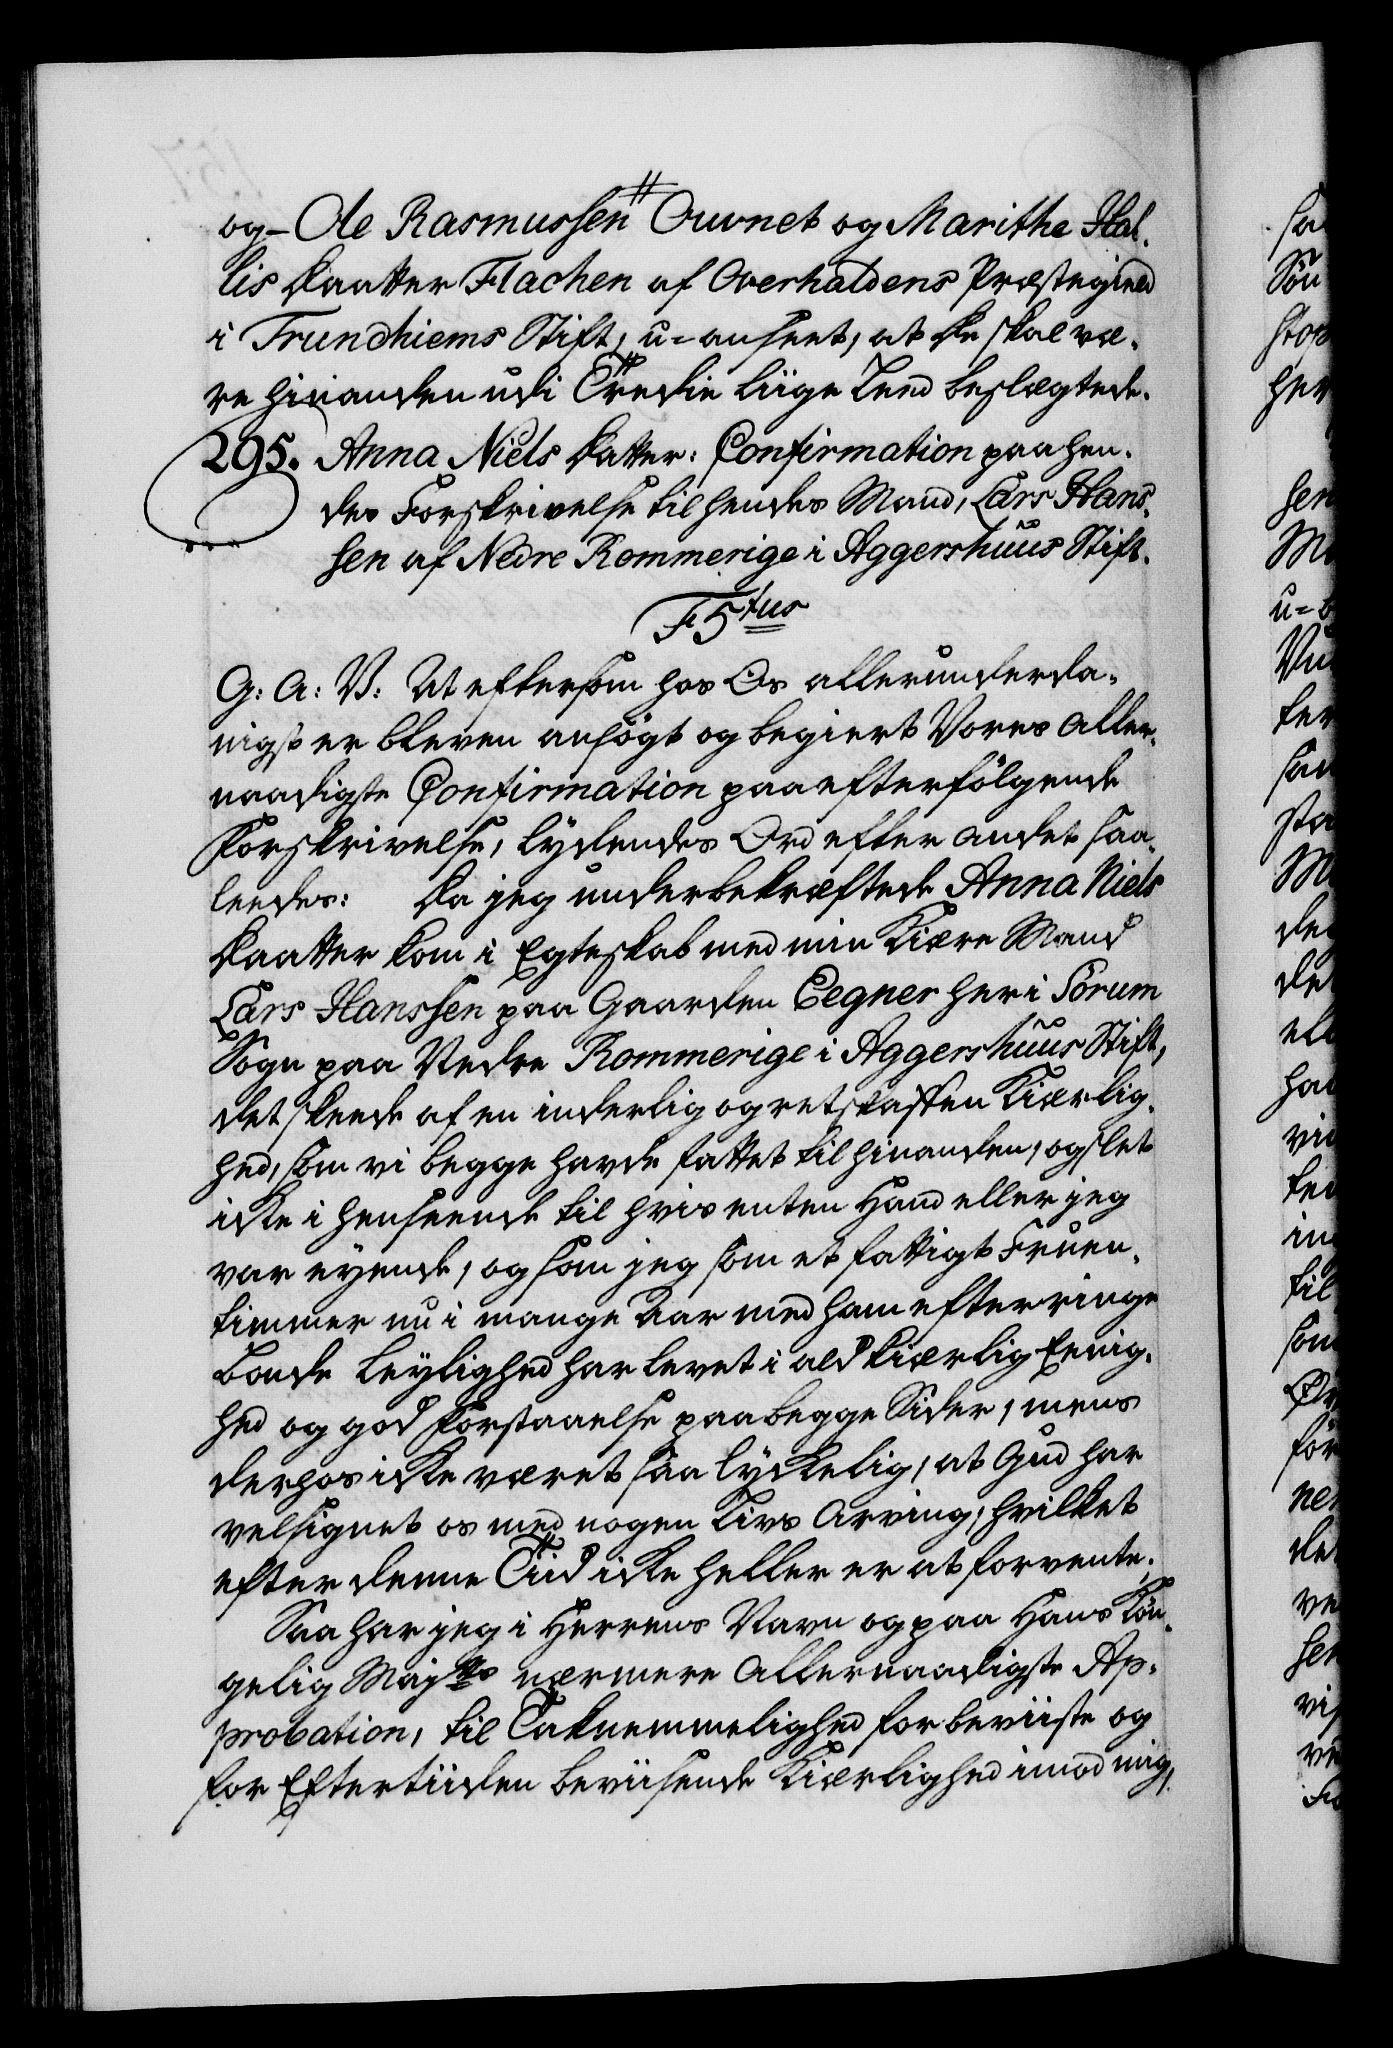 og- Ole Rasmussen Ouvnet og Marithe Hal-
lis Daatter Flachen af Overhaldens Præstegield
i Trundhiems Stift, u-anseet, at de skal væ-
re hinanden udi Tredie liige Leed beslægtede.
295. Anna Niels Datter: Confirmation paa hen-
des Forskrivelse til hendes Mand, Lars Hans-
sen af Nedre Rommerige i Aggershuus Stift.
F5tus
G: A: V: At eftersom hos Os allerunderda-
nigst er bleven ansögt og begiert Vores Aller-
naadigste Confirmation paa efterfölgende
Forskrivelse, lydendes Ord efter andet saa-
leedes: Da jeg underbekræftede Anna Niels
Daatter kom i Egteskab med min Kiære Mand
Lars Hanssen paa Gaarden Eegner her i Sørum
Sogn paa Nedre Rommerige i Aggershuus Stift,
det skeede af en inderlig og retskaffen Kiærlig-
hed, som vi begge havde fattet til hinanden, og slet
icke i henseende til hvis enten Hand eller jeg
var eyende, og som jeg som et fattigt Fruen-
timmer nu i mange Aar med ham efter ringe
Bonde Leylighed har levet i ald kiærlig Eenig-
hed og god Forstaaelse paa begge Sider, mens
derhos icke været saa lyckelig, at Gud har
velsignet os med nogen Livs Arving, hvilket
efter denne Tiid icke heller er at forvente;
Saa har jeg i Herrens Navn og paa Hans Kon-
gelig Mayts nærmere Allernaadigste Ap-
probation, til Taknemmelighed for beviiste og
for Eftertiiden beviisende Kiærlighed imod mig,